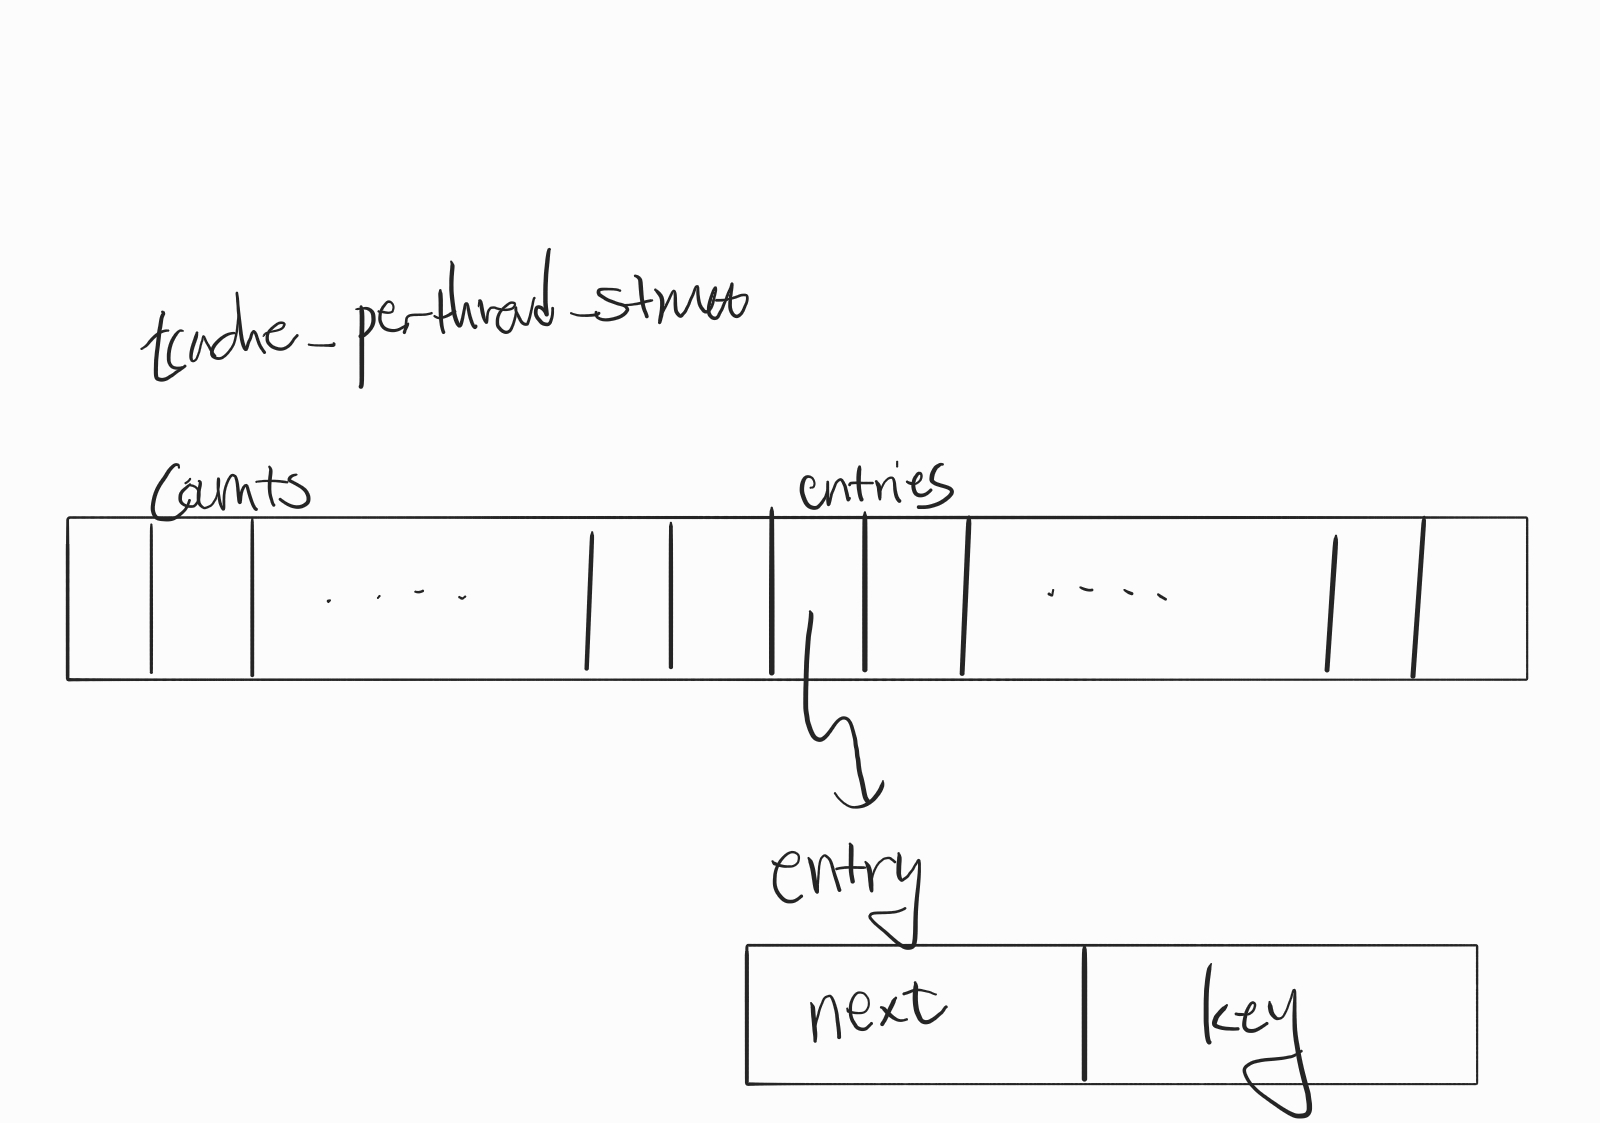 tcache_perthread_struct
Counts
entries
entry
next
key